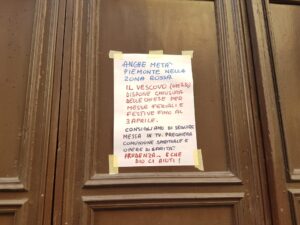 ANCHE META'
PIEMONTE NELLA
ZONA ROSSA.
IL VESCOVO
DISPONE CHIUSURA
DELLE CHIESE PER
MESSE FERIALI E
FESTIVE FINO AL
3 APRILE.
CONSIGLIAMO DI SEGUIRE
MESSA IN TV. PREGHIERA
COMUNIONE SPIRITUALE E
OPERE DI CARITÀ.
PRUDENZA... E CHE
DIO CI AIUTI!